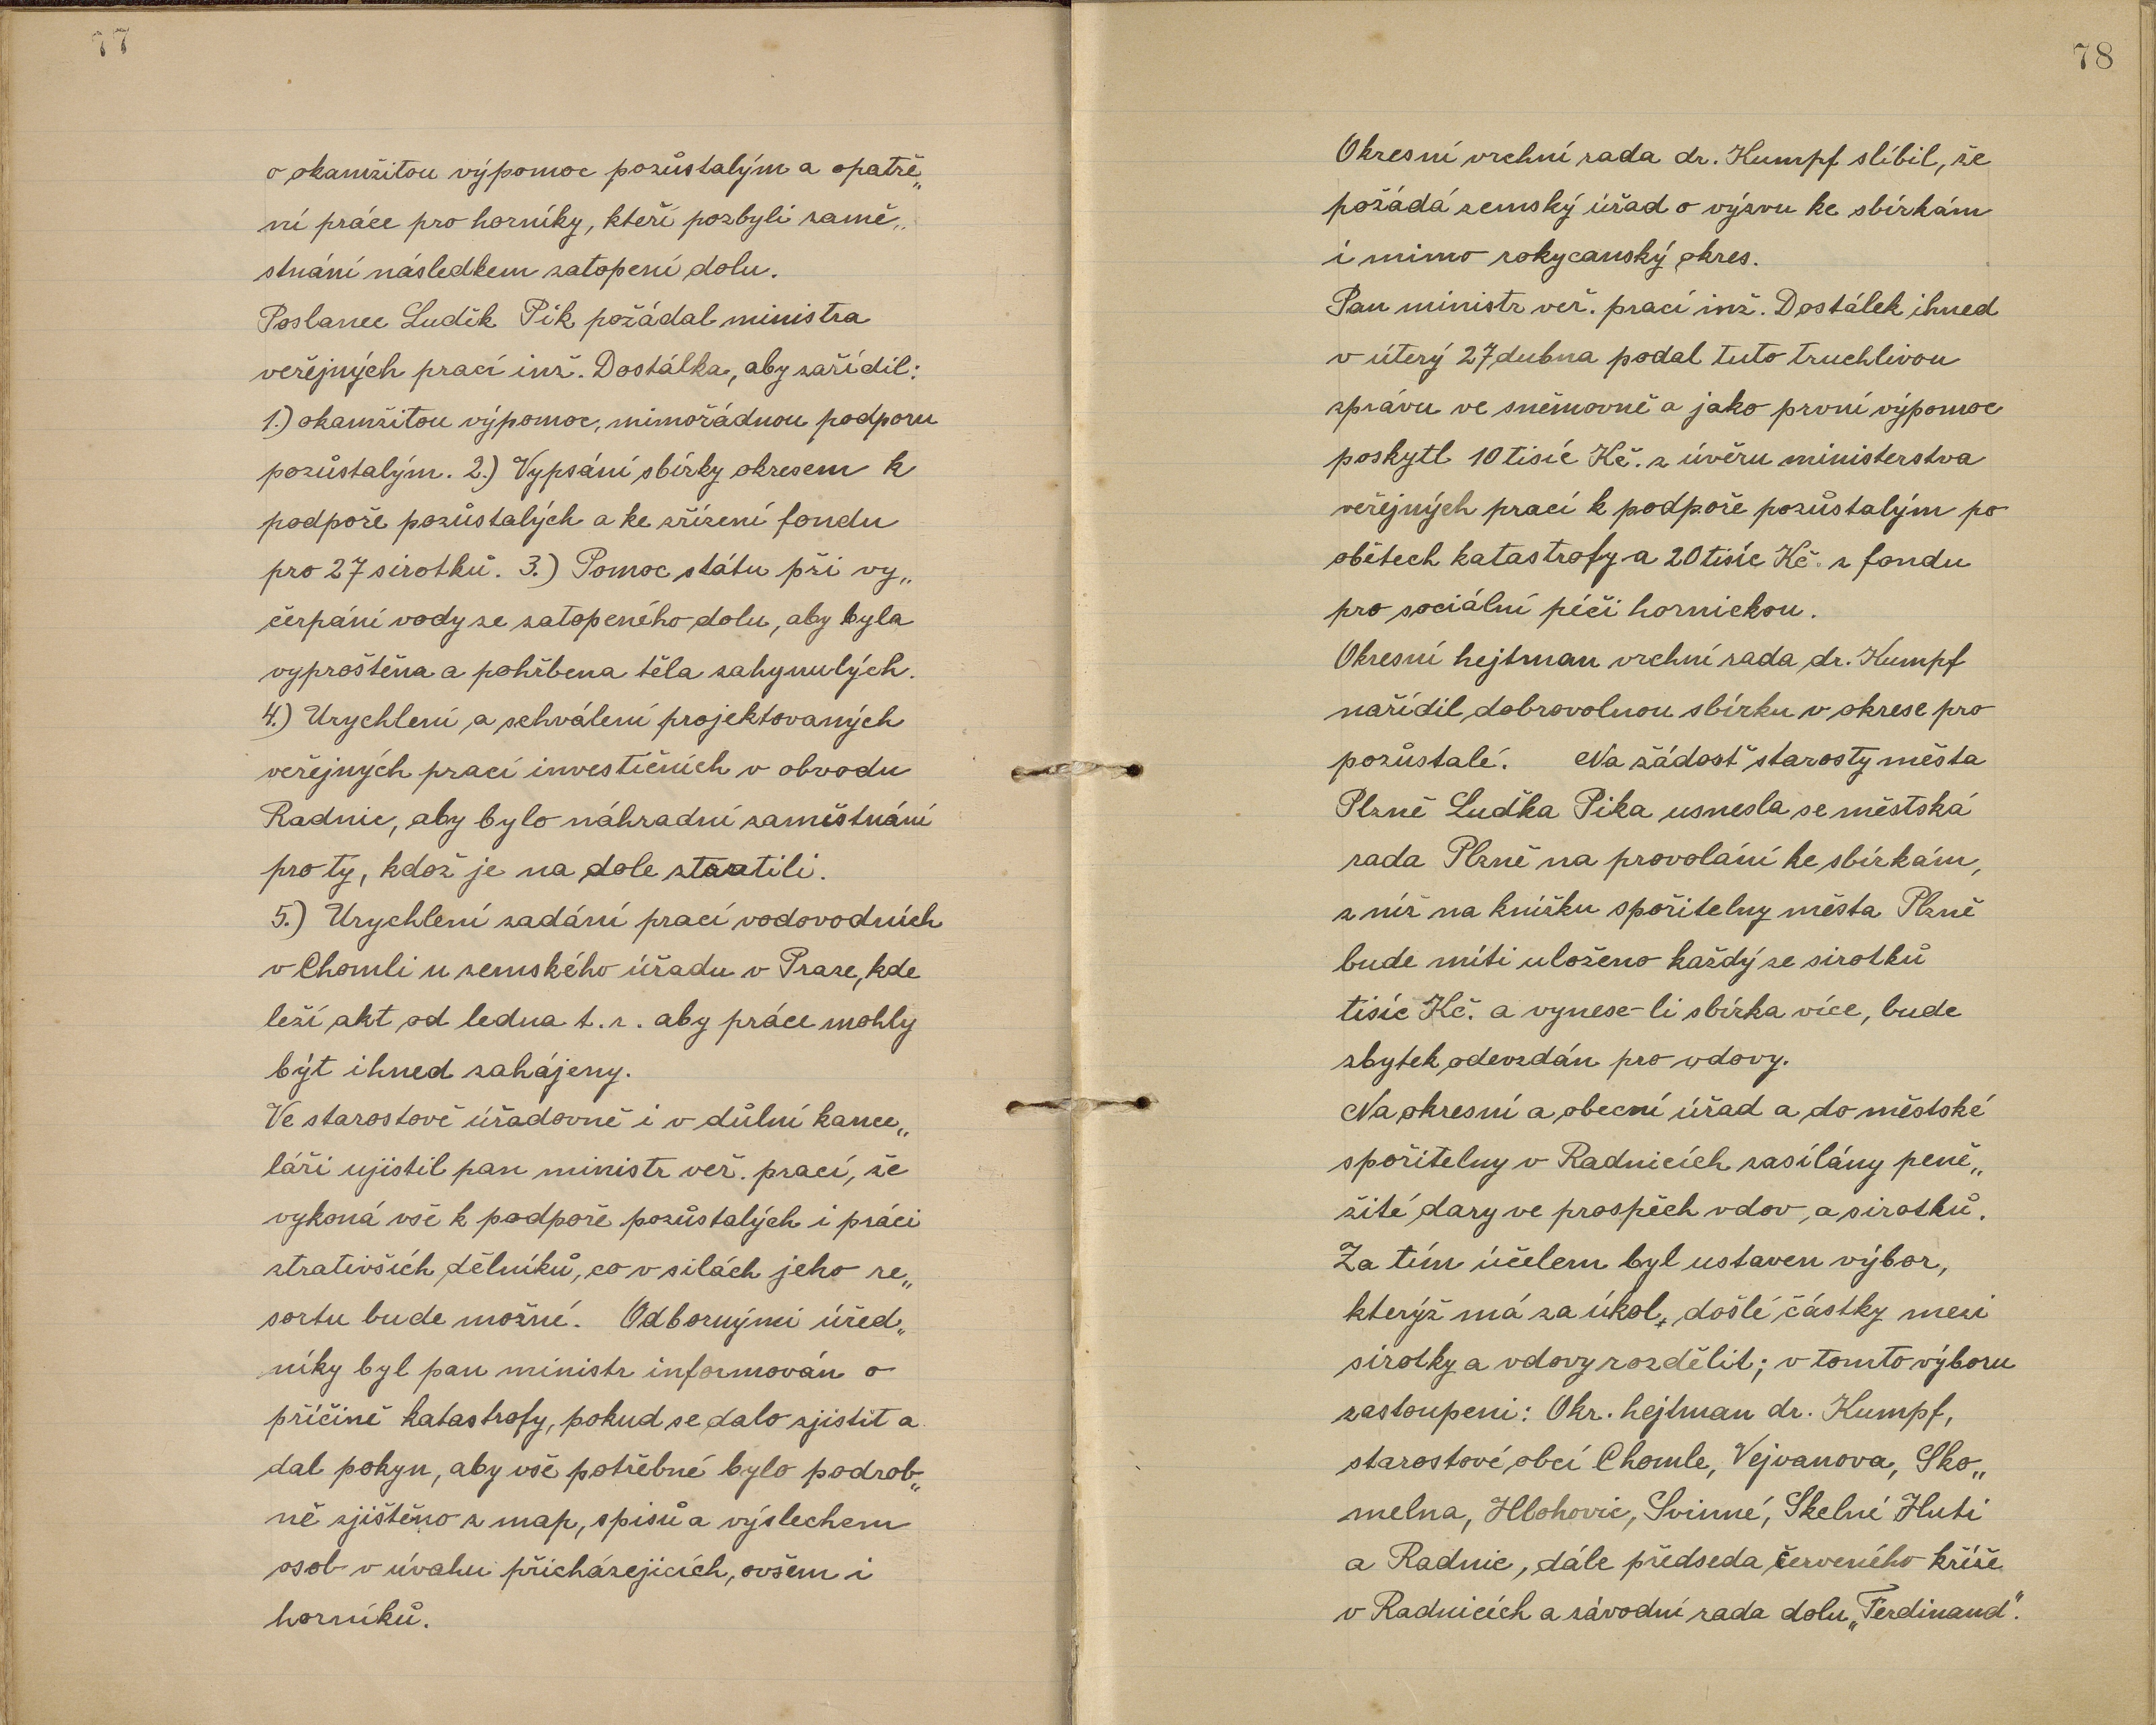 77
o okamžitou výpomoc pozůstalým a opatře„
ní práce pro horníky, kteří pozbyli zamě„
stnání následkem zatopení dolu.
Poslanec Luděk Pik požádal ministra
veřejných prací inž. Dostálka, aby zařídil:
1.) okamžitou výpomoc, mimořádnou podporu
pozůstalým. 2.) Vypsání sbírky okresem k
podpoře pozůstalých a ke zřízení fondu
pro 27 sirotků. 3.) Pomoc státu při vy„
čerpání vody ze zatopeného dolu, aby byla
vyproštěna a pohřbena těla zahynulých.
4.) Urychlení a schválení projektovaných
veřejných prací investičních v obvodu
Radnic, aby bylo náhradní zaměstnání
pro ty, kdož je na dole ztratili.
5.) Urychlení zadání prací vodovodních
v Chomli u zemského úřadu v Praze, kde
leží akt od ledna t.r. aby práce mohly
být ihned zahájeny.
Ve starostově úřadovně i v důlní kance„
láři ujistil pan ministr veř. prací, že
vykoná vše k podpoře pozůstalých i práci
ztrativších dělníků, co v silách jeho re„
sortu bude možné. Odbornými úřed„
níky byl pan ministr informován o
příčině katastrofy, pokud se dalo zjistit a
dal pokyn, aby vše potřebné bylo podrob„
ně zjištěno z map, spisů a výslechem
osob v úvahu přicházejících, ovšem i
horníků.
78
Okresní vrchní rada dr. Kumpf slíbil, že
požádá zemský úřad o výzvu ke sbírkám
i mimo rokycanský okres.
Pan ministr veř. prací inž. Dostálek ihned
v úterý 27 dubna podal tuto truchlivou
zprávu ve sněmovně a jako první výpomoc
poskytl 10 tisíc Kč. z úvěru ministerstva
veřejných prací k podpoře pozůstalým po
obětech katastrofy a 20 tisíc Kč. z fondu
pro sociální péči hornickou.
Okresní hejtman vrchní rada dr. Kumpf
nařídil dobrovolnou sbírku v okrese pro
pozůstalé. Na žádosť starosty města
Plzně Luďka Pika usnesla se městská
rada Plzně na provolání ke sbírkám,
z níž na knížku spořitelny města Plzně
bude míti uloženo každý ze sirotků
tisíc Kč. a vynese-li sbírka více, bude
zbytek odevzdán pro vdovy.
Na okresní a obecní úřad a do městské
spořitelny v Radnicích zasílány peně„
žité dary ve prospěch vdov, a sirotků.
Za tím účelem byl ustaven výbor,
kterýž má za úkol, došlé částky mezi
sirotky a vdovy rozdělit; v tomto výboru
zastoupeni: Okr. hejtman dr. Kumpf,
starostové obcí Chomle, Vejvanova, Sko„
melna, Hlohovic, Svinné, Skelné Huti
a Radnic, dále předseda červeného kříže
v Radnicích a závodní rada dolu „Ferdinand“.